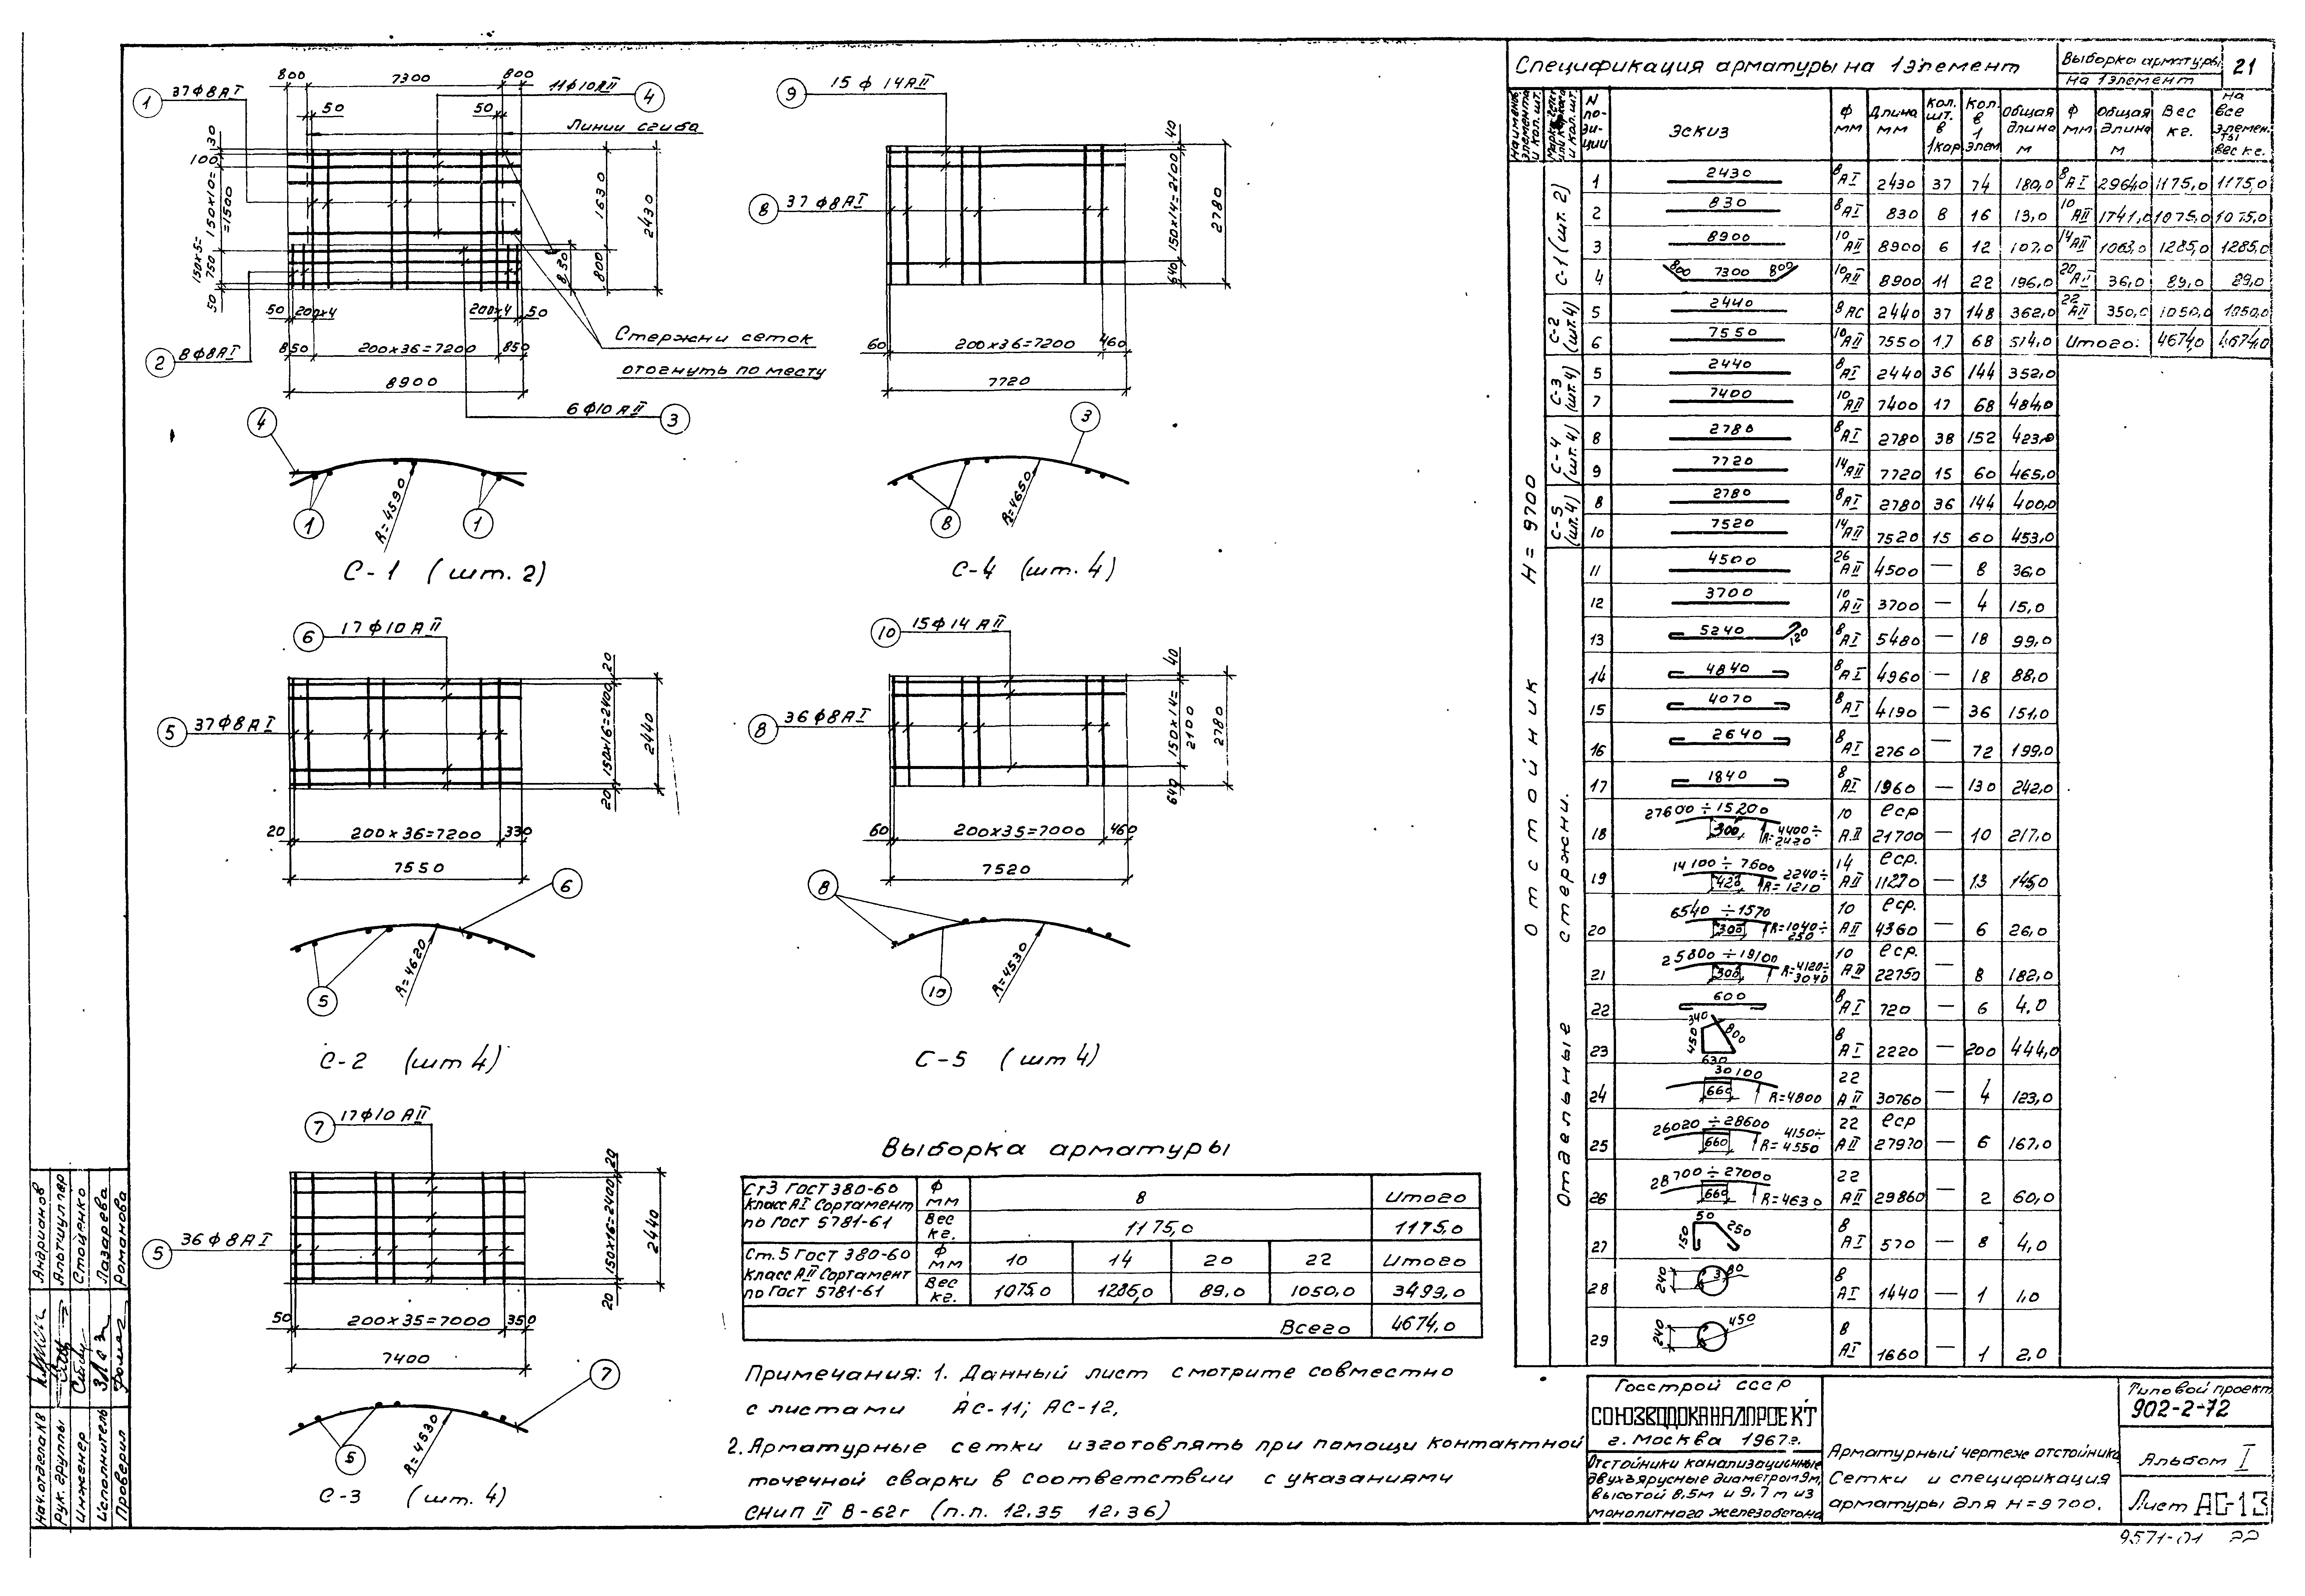 Спецификация арматуры на 1 элемент
Выборка арматуры
на 1 элемент
21
Наименов. элемента и кол. шт.
Марка сетки или каркаса и кол. шт.
N по-зи-ции
Эскиз
Ф мм
Длина мм
Кол. шт. в 1 кар
Кол. в 1 элем
Общая длина м
Ф мм
Общая длина м
Вес кг.
На все элемен.ты вес кг.
Отстойник H = 9700
С-1 (шт. 2)
1 2430 8 АI 2430 37 74 180,0 8 АI 2964,0 1175,0 1175,0
2 830 8 АI 830 8 16 13,0 10 АII 1741,0 1075,0 1075,0
3 8900 10 АII 8900 6 12 107,0 14 АII 1063,0 1285,0 1285,0
4 800 7300 800 10 АII 8900 11 22 196,0 20 АII 36,0 89,0 89,0
С-2 (шт. 4)
5 2440 8 АС 2440 37 148 362,0 22 АII 350,0 1050,0 1050,0
6 7550 10 АII 7550 17 68 514,0 Итого: 4674,0 4674,0
С-3 (шт. 4)
5 2440 8 АI 2440 36 144 352,0
7 7400 10 АII 7400 17 68 484,0
С-4 (шт. 4)
8 2780 8 АI 2780 38 152 423,0
9 7720 14 АII 7720 15 60 465,0
С-5 (шт. 4)
8 2780 8 АI 2780 36 144 400,0
10 7520 14 АII 7520 15 60 453,0
Отдельные стержни.
11 4500 26 АII 4500 — 8 36,0
12 3700 10 АII 3700 — 4 15,0
13 5240 120 8 АI 5480 — 18 99,0
14 4840 8 АI 4960 — 18 88,0
15 4070 8 АI 4190 — 36 151,0
16 2640 8 АI 2760 — 72 199,0
17 1840 8 АI 1960 — 130 242,0
18 27600 ÷ 15200 300 R=4400÷2420 10 АII ℓср 21700 — 10 217,0
19 14100 ÷ 7600 420 2240÷ R=1210 14 АII ℓср. 11270 — 13 145,0
20 6540 ÷ 1570 300 R=1040÷250 10 АII ℓср. 4360 — 6 26,0
21 25800 ÷ 19100 300 R=4120÷3040 10 АII ℓср. 22750 — 8 182,0
22 600 8 АI 720 — 6 4,0
23 340 450 800 630 8 АI 2220 — 200 444,0
24 30100 660 R=4800 22 АII 30760 — 4 123,0
25 26020 ÷ 28600 660 4150÷ R=4550 22 АII ℓср 27970 — 6 167,0
26 28700 ÷ 27000 660 R=4630 22 АII 29860 — 2 60,0
27 50 150 250 8 АI 570 — 8 4,0
28 240 380 8 АI 1440 — 1 1,0
29 240 450 8 АI 1660 — 1 2,0
1 37Ф8АI
800 7300 800
11Ф10АII 4
50 50
Линии сгиба
30
100
150х10=
=1500
150х5=
750
50
1630
2430
850
800
50 200х4 200х4 50
2 8Ф8АI
850 200х36=7200 850
8900
Стержни сеток
отогнуть по месту
6Ф10АII 3
4
1 1
R=4590
С-1 (шт. 2)
9 15Ф14АII
8 37Ф8АI
40
150х14=2100
640
2780
60 200х36=7200 460
7720
3
8
R=4650
С-4 (шт. 4)
6 17Ф10АII
5 37Ф8АI
20
150х16=2400
20
2440
20 200х36=7200 330
7550
6
5
R=4620
С-2 (шт 4)
10 15Ф14АII
8 36Ф8АI
40
150х14=
2100
640
2780
60 200х35=7000 460
7520
8
10
R=4530
С-5 (шт 4)
7 17Ф10АII
5 36Ф8АI
20
150х16=2400
20
2440
50 200х35=7000 350
7400
7
5
R=4530
С-3 (шт. 4)
Выборка арматуры
Ст3 ГОСТ 380-60
класс АI Сортамент
по ГОСТ 5781-61
Ф мм 8 Итого
Вес кг. 1175,0 1175,0
Ст.5 ГОСТ 380-60
класс АII Сортамент
по ГОСТ 5781-61
Ф мм 10 14 20 22 Итого
Вес кг. 1075,0 1286,0 89,0 1050,0 3499,0
Всего 4674,0
Примечания: 1. Данный лист смотрите совместно
с листами АС-11; АС-12,
2. Арматурные сетки изготовлять при помощи контактной
точечной сварки в соответствии с указаниями
СНиП II В-62г (п.п. 12.35 12.36)
Госстрой СССР
СОЮЗВОДОКАНАЛПРОЕКТ
г. Москва 1967г.
Отстойники канализационные
двухъярусные диаметром 9м,
высотой 8,5м и 9,7м из
монолитного железобетона
Арматурный чертеж отстойника
Сетки и спецификация
арматуры для H=9700.
Типовой проект
902-2-72
Альбом I
Лист АС-13
9571-01 22
Нач.отдела N8 Андрианов
Рук. группы Альтшуллер
Инженер Стоценко
Исполнитель Лазарева
Проверил Романова